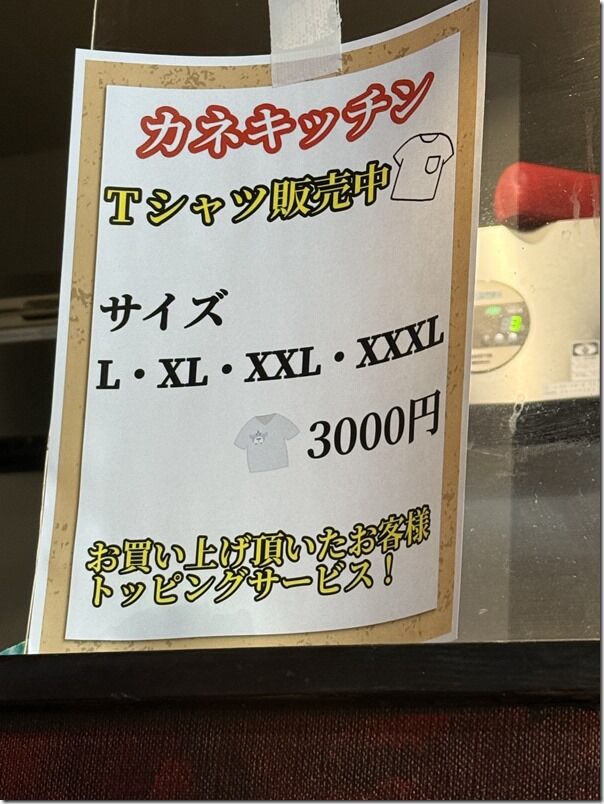 カネキッチン
Tシャツ販売中
サイズ
L・XL・XXL・XXXL
3000円
お買い上げ頂いたお客様
トッピングサービス！